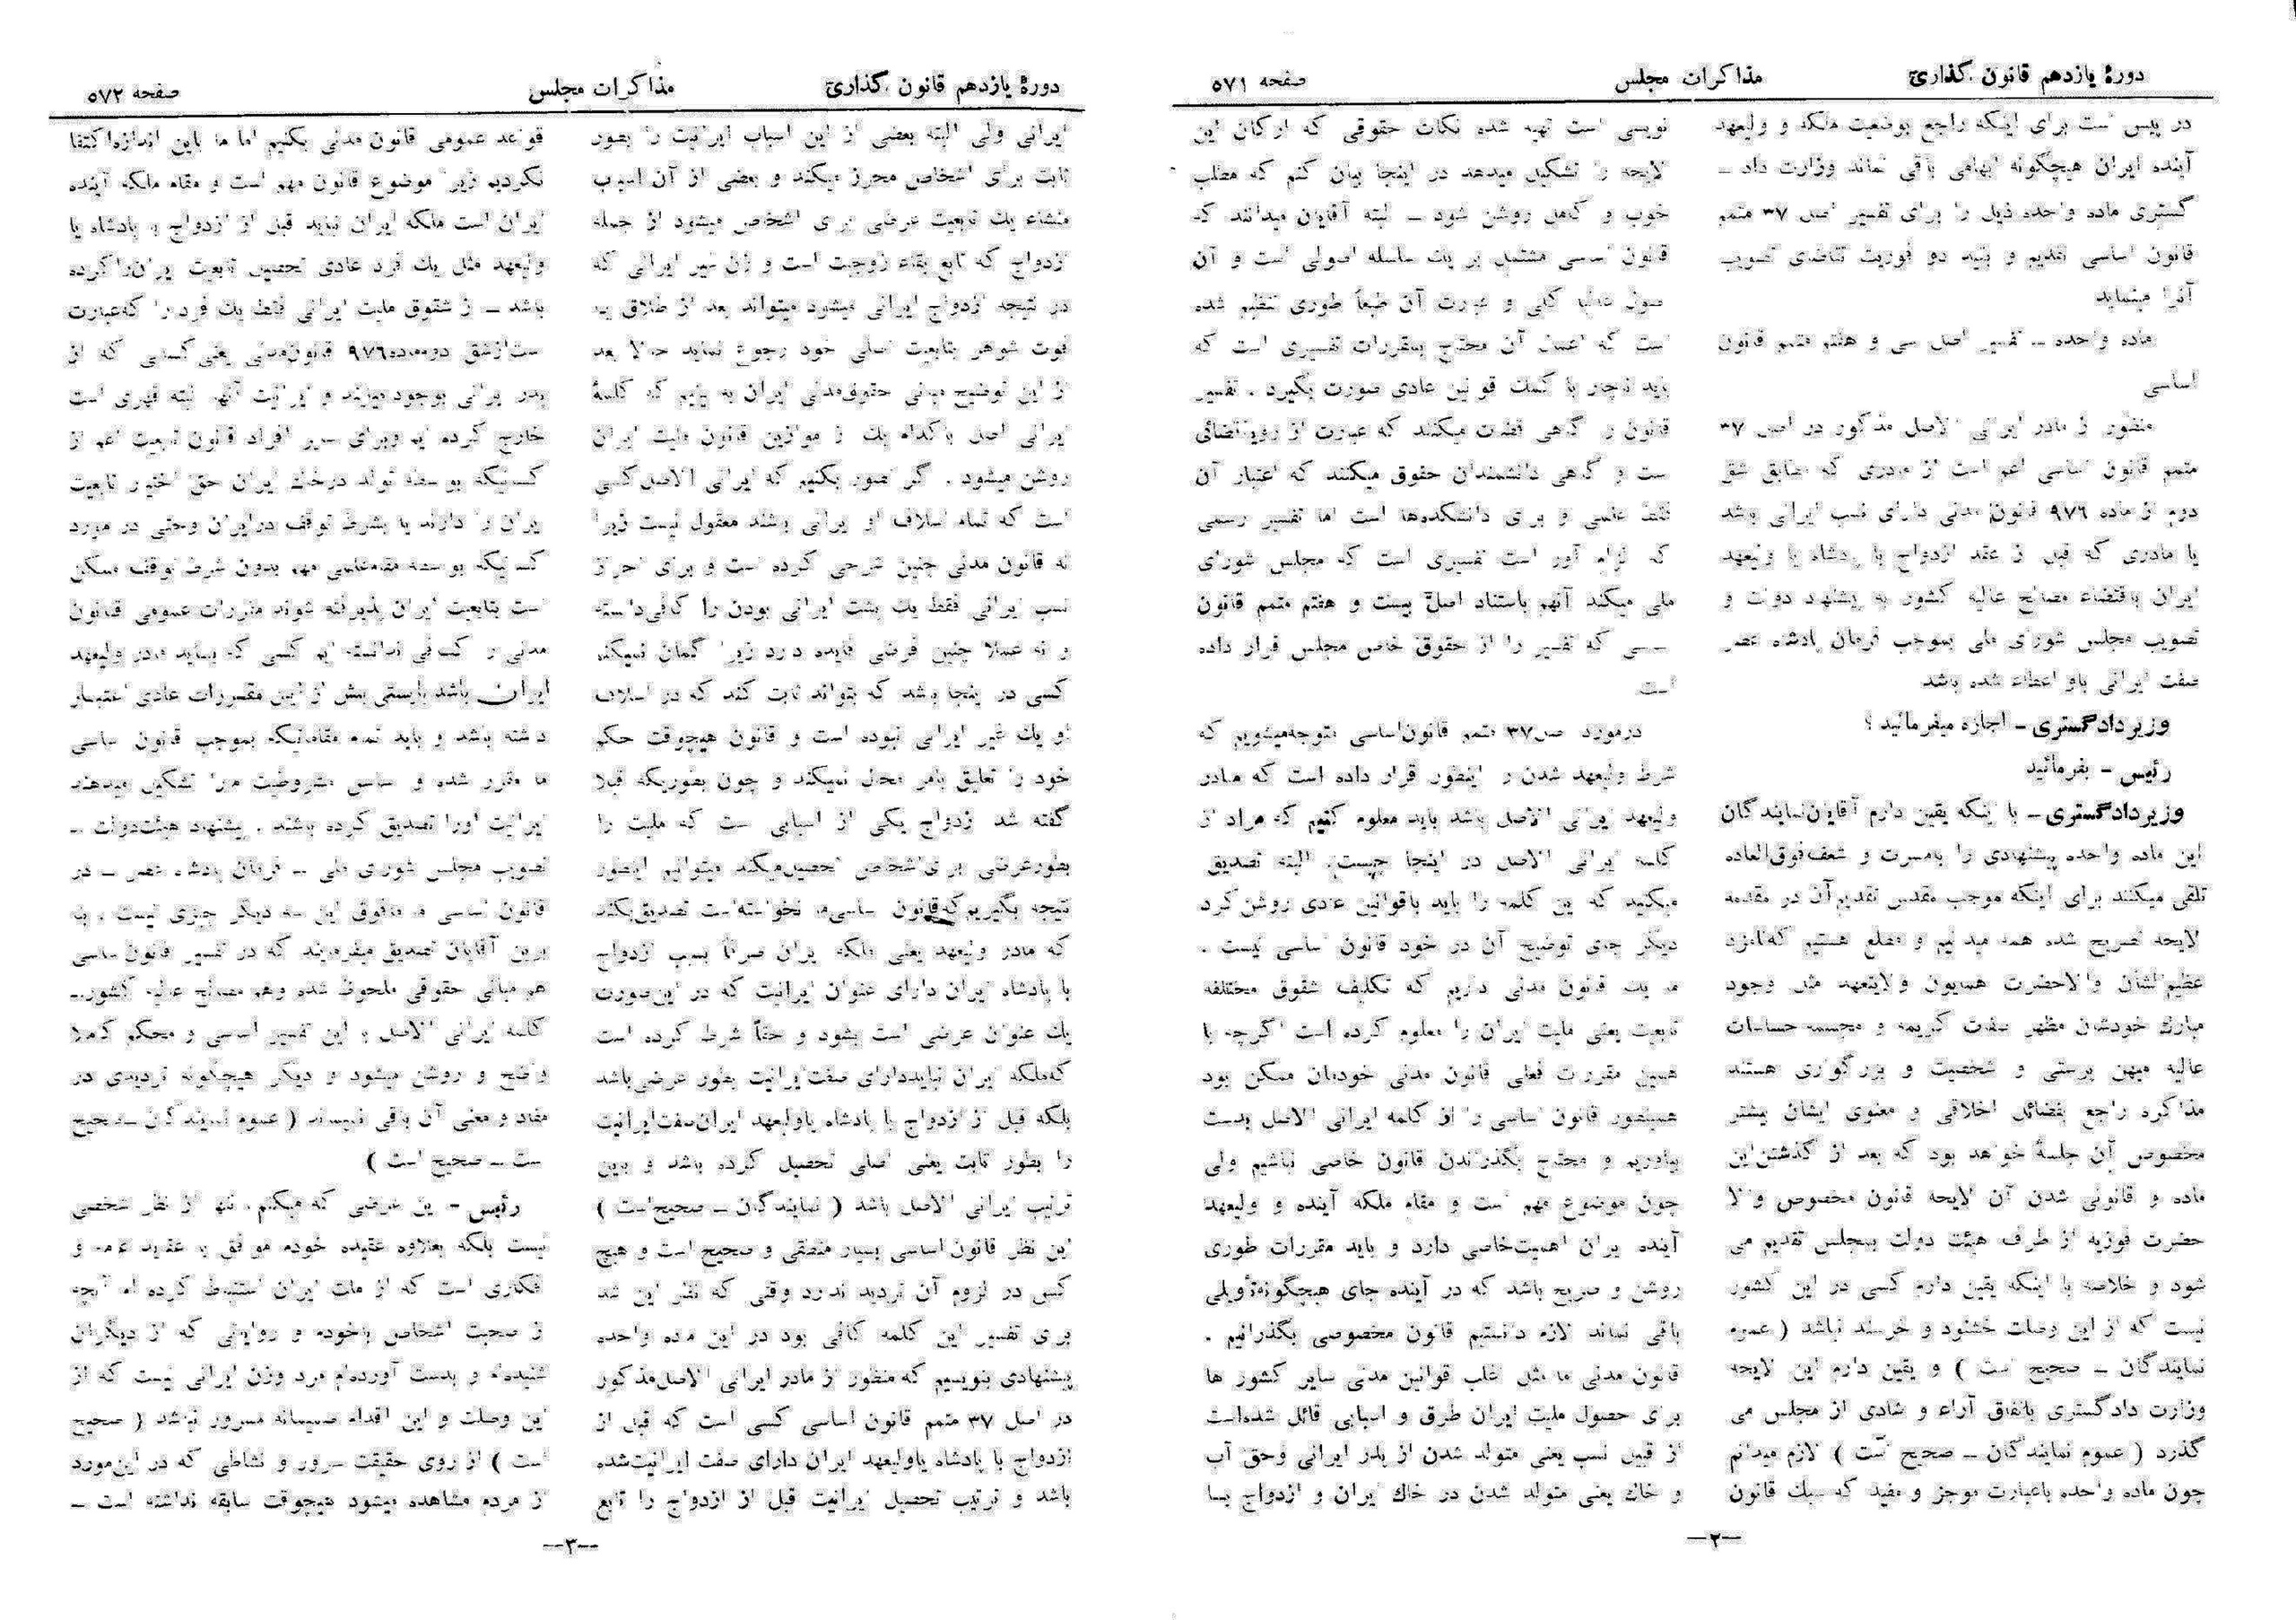 دورهٔ یازدهم قانون گذاری
مذاکرات مجلس
صفحه ۵۷۱
در پیش است برای اینکه راجع بوضعیت ملکه و ولیعهد
آینده ایران هیچگونه ابهامی باقی نماند وزارت داد ــ
گستری ماده واحده ذیل را برای تفسیر اصل ۳۷ متمم
قانون اساسی تقدیم و بقید دو فوریت تقاضای تصویب
آنرا مینماید
ماده واحده ــ تفسیر اصل سی و هفتم متمم قانون
اساسی
منظور از مادر ایرانی الاصل مذکور در اصل ۳۷
متمم قانون اساسی اعم است از مادری که مطابق شق
دوم از ماده ۹۷۶ قانون مدنی دارای نسب ایرانی باشد
یا مادری که قبل از عقد ازدواج با پادشاه یا ولیعهد
ایران باقتضاء مصالح عالیه کشور به پیشنهاد دولت و
تصویب مجلس شورای ملی بموجب فرمان پادشاه عصر
صفت ایرانی باو اعطاء شده باشد
وزیر دادگستری ــ اجازه میفرمائید ؟
رئیس ــ بفرمائید
وزیر دادگستری ــ با اینکه یقین دارم آقایان نمایندگان
این ماده واحده پیشنهادی را بامسرت و شعف فوق‌العاده
تلقی میکنند برای اینکه موجب مقدس تقدیم آن در مقدمه
لایحه تصریح شده همه میدانیم و مطلع هستیم که نامزد
عظیم الشأن والاحضرت همایون ولایتعهد مثل وجود
مبارک خودشان مظهر صفات کریمه و مجسمه حساسات
عالیه میهن پرستی و شخصیت و بزرگواری هستند
مذاکره راجع بفضائل اخلاقی و معنوی ایشان بیشتر
مخصوص آن جلسهٔ خواهد بود که بعد از گذشتن این
ماده و قانونی شدن آن لایحه قانون مخصوص والا
حضرت فوزیه از طرف هیئت دولت بمجلس تقدیم می
شود و خلاصه با اینکه یقین دارم کسی در این کشور
نیست که از این وصلت خشنود و خرسند نباشد ( عموم
نمایندگان ــ صحیح است ) و یقین دارم این لایحه
وزارت دادگستری باتفاق آراء و شادی از مجلس می
گذرد ( عموم نمایندگان ــ صحیح است ) لازم میدانم
چون ماده واحده باعبارت موجز و مفید که سبک قانون
نویسی است تهیه شده نکات حقوقی که ارکان این
لایحه را تشکیل میدهد در اینجا بیان کنم که مطلب
خوب و کامل روشن شود ــ البته آقایان میدانند که
قانون اساسی مشتمل بر یک سلسله اصولی است و آن
اصول غالباً کلی و عبارت آن طبعاً طوری تنظیم شده
است که اعمال آن محتاج بمقررات تفسیری است که
باید ناچار با کمک قوانین عادی صورت بگیرد . تفسیر
قانون را گاهی قضات میکنند که عبارت از رویه قضائی
است و گاهی دانشمندان حقوق میکنند که اعتبار آن
فقط علمی و برای دانشکده‌ها است اما تفسیر رسمی
که الزام آور است تفسیری است که مجلس شورای
ملی میکند آنهم باستناد اصل بیست و هفتم متمم قانون
اساسی که تفسیر را از حقوق خاص مجلس قرار داده
است
درمورد اصل ۳۷ متمم قانون اساسی متوجه میشویم که
شرط ولیعهد شدن را اینطور قرار داده است که مادر
ولیعهد ایرانی الاصل باشد باید معلوم کنیم که مراد از
کلمه ایرانی الاصل در اینجا چیست. البته تصدیق
میکنید که این کلمه را باید باقوانین عادی روشن کرد
دیگر جای توضیح آن در خود قانون اساسی نیست .
ما یک قانون مدنی داریم که تکلیف شقوق مختلفه
تابعیت یعنی ملیت ایران را معلوم کرده است اگرچه با
همین مقررات فعلی قانون مدنی خودمان ممکن بود
همینطور قانون اساسی را از کلمه ایرانی الاصل بدست
بیاوریم و محتاج بگذراندن قانون خاصی نباشیم ولی
چون موضوع مهم است و مقام ملکه آینده و ولیعهد
آینده ایران اهمیت خاصی دارد و باید مقررات طوری
روشن و صریح باشد که در آینده جای هیچگونه تأویلی
باقی نماند لازم دانستیم قانون مخصوصی بگذرانیم .
قانون مدنی ما مثل اغلب قوانین مدنی سایر کشور ها
برای حصول ملیت ایران طرق و اسبابی قائل شده است
از قبیل نسب یعنی متولد شدن از پدر ایرانی وحق آب
و خاک یعنی متولد شدن در خاک ایران و ازدواج بــا
—۲—
دورهٔ یازدهم قانون گذاری
مذاکرات مجلس
صفحه ۵۷۲
ایرانی ولی البته بعضی از این اسباب ایرانیت را بطور
ثابت برای اشخاص محرز میکند و بعضی از آن اسباب
منشاء یک تابعیت عرضی برای اشخاص میشود از جمله
ازدواج که تابع بقاء زوجیت است و زن غیر ایرانی که
در نتیجه ازدواج ایرانی میشود میتواند بعد از طلاق یا
فوت شوهر بتابعیت اصلی خود رجوع نماید حالا بعد
از این توضیح مبانی حقوق مدنی ایران به بینیم که کلمهٔ
ایرانی اصل با کدام یک از موازین قانون ملیت ایران
روشن میشود . اگر تصور بکنیم که ایرانی الاصل کسی
است که تمام اسلاف او ایرانی باشند معقول نیست زیرا
نه قانون مدنی چنین شرحی کرده است و برای احراز
نسب ایرانی فقط یک پشت ایرانی بودن را کافی دانسته
و نه عملا چنین فرضی فایده دارد زیرا گمان نمیکنم
کسی در اینجا باشد که بتواند ثابت کند که در اسلاف
او یک غیر ایرانی نبوده است و قانون هیچوقت حکم
خود را تعلیق بامر محال نمیکند و چون بطوریکه قبلا
گفته شد ازدواج یکی از اسبابی است که ملیت را
بطورعرضی برای اشخاص تحصیل میکند میتوانیم اینطور
نتیجه بگیریم که قانون اساسی ما نخواسته است تصدیق بکند
که مادر ولیعهد یعنی ملکه ایران صرفاً بسبب ازدواج
با پادشاه ایران دارای عنوان ایرانیت که در این صورت
یک عنوان عرضی است بشود و حقاً شرط کرده است
که ملکه ایران نباید دارای صفت ایرانیت بطور عرضی باشد
بلکه قبل از ازدواج با پادشاه یا ولیعهد ایران صفت ایرانیت
را بطور ثابت یعنی اصلی تحصیل کرده باشد و باین
ترتیب ایرانی الاصل باشد ( نمایندگان ــ صحیح است )
این نظر قانون اساسی بسیار منطقی و صحیح است و هیچ
کس در لزوم آن تردید ندارد وقتی که نظر این شد
برای تفسیر این کلمه کافی بود در این ماده واحده
پیشنهادی بنویسیم که منظور از مادر ایرانی الاصل مذکور
در اصل ۳۷ متمم قانون اساسی کسی است که قبل از
ازدواج با پادشاه یا ولیعهد ایران دارای صفت ایرانیت شده
باشد و ترتیب تحصیل ایرانیت قبل از ازدواج را تابع
قواعد عمومی قانون مدنی بکنیم اما ما باین اندازه اکتفا
نکردیم زیرا موضوع قانون مهم است و مقام ملکه آینده
ایران است ملکه ایران نباید قبل از ازدواج با پادشاه یا
ولیعهد مثل یک فرد عادی تحصیل تابعیت ایران را کرده
باشد ــ از شقوق ملیت ایرانی فقط یک فرد را که عبارت
است از شق دوم ماده ۹۷۶ قانون مدنی یعنی کسانی که از
پدر ایرانی بوجود میایند و ایرانیت آنها البته قهری است
خارج کرده ایم وبرای سایر افراد قانون تابعیت اعم از
کسانیکه بواسطه تولد درخاک ایران حق اختیار تابعیت
ایران را دارند یا بشرط توقف در ایران وحتی در مورد
کسانیکه بواسطه مقام علمی مهم بدون شرط توقف ممکن
است بتابعیت ایران پذیرفته شوند مقررات عمومی قانون
مدنی را کافی ندانسته ایم کسی که بباید مادر ولیعهد
ایران باشد بایستی بیش از این مقررات عادی اعتبار
داشته باشد و باید تمام مقاماتیکه بموجب قانون اساسی
ما مقرر شده و اساس مشروطیت ما را تشکیل میدهند
ایرانیت اورا تصدیق کرده باشند . پیشنهاد هیئت دولت ــ
تصویب مجلس شورای ملی ــ فرمان پادشاه عصر ــ در
قانون اساسی ما مافوق این سه دیگر چیزی نیست . بنا
براین آقایان تصدیق میفرمایند که در تفسیر قانون اساسی
هم مبانی حقوقی ملحوظ شده وهم مصالح عالیه کشور ــ
کلمه ایرانی الاصل با این تفسیر اساسی و محکم کاملا
واضح و روشن میشود و دیگر هیچگونه تردیدی در
مفاد و معنی آن باقی نمیماند ( عموم نمایندگان ــ صحیح
است ــ صحیح است )
رئیس ــ این عرضی که میکنم تنها از نظر شخصی
نیست بلکه بعلاوه عقیده خودم موافق با عقیده عامه و
افکاری است که از ملت ایران استنباط کرده ام آنچه
از صحبت اشخاص باخودم و روایاتی که از دیگران
شنیده‌ام و بدست آورده‌ام مرد وزن ایرانی نیست که از
این وصلت و این اقدام صمیمانه مسرور نباشد ( صحیح
است ) از روی حقیقت سرور و نشاطی که در این مورد
از مردم مشاهده میشود هیچوقت سابقه نداشته است ــ
—۳—